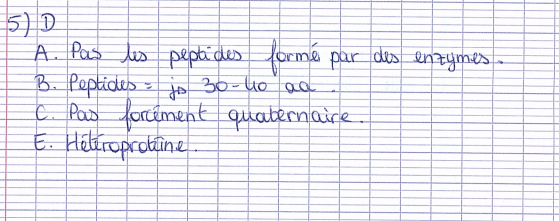 5) D
A. Pas les peptides formé par des enzymes.
B. Peptides = js 30-40 aa.
C. Pas forcément quaternaire.
E. Hétéroprotéine.